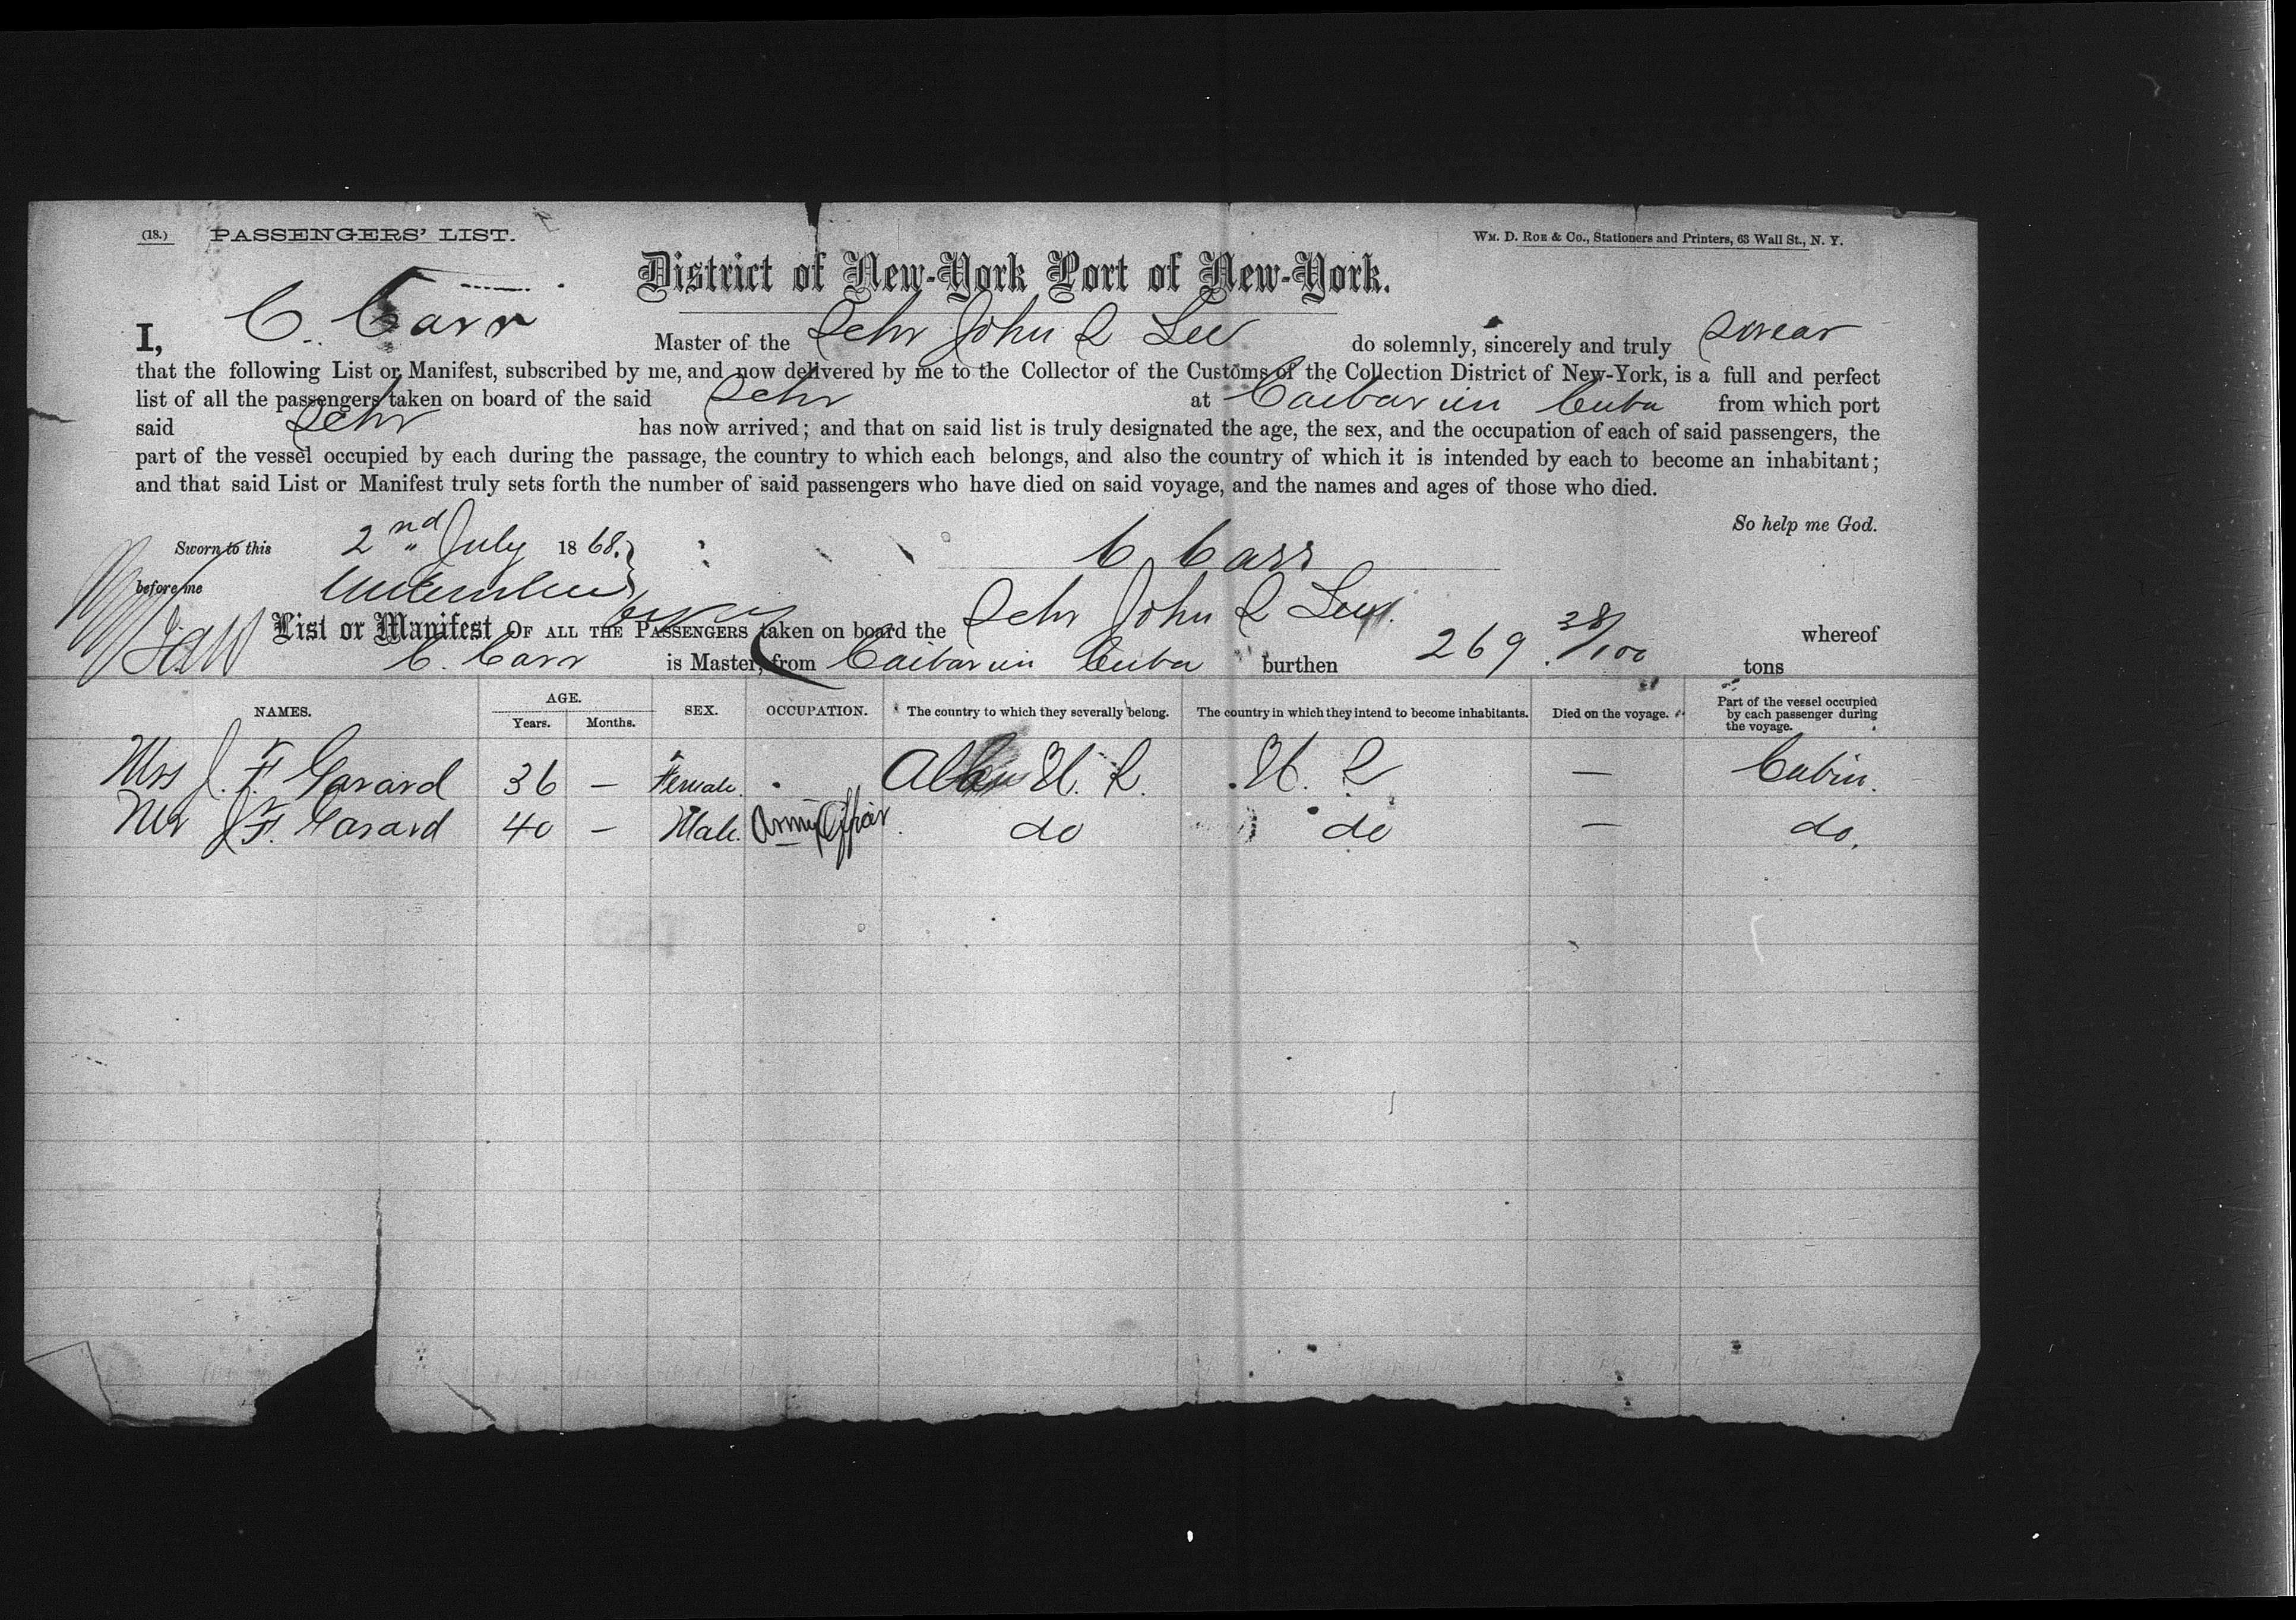 (18.) PASSENGERS' LIST.
Wm. D. Roe & Co., Stationers and Printers, 63 Wall St., N. Y.
District of New-York Port of New-York.
I, C. Carr Master of the Schr John S Lee do solemnly, sincerely and truly swear
that the following List or Manifest, subscribed by me, and now delivered by me to the Collector of the Customs of the Collection District of New-York, is a full and perfect
list of all the passengers taken on board of the said Schr at Caibarien Cuba from which port
said Schr has now arrived; and that on said list is truly designated the age, the sex, and the occupation of each of said passengers, the
part of the vessel occupied by each during the passage, the country to which each belongs, and also the country of which it is intended by each to become an inhabitant;
and that said List or Manifest truly sets forth the number of said passengers who have died on said voyage, and the names and ages of those who died.
So help me God.
Sworn to this 2nd July 1868. C Carr
before me
List or Manifest OF ALL THE PASSENGERS taken on board the Schr John S Lee whereof
C. Carr is Master, from Caibarien Cuba burthen 269 38/100 tons
NAMES. AGE. Years. Months. SEX. OCCUPATION. The country to which they severally belong. The country in which they intend to become inhabitants. Died on the voyage. Part of the vessel occupied by each passenger during the voyage.
Mrs J. F. Garard 36 — Female. U. S. U. S — Cabin.
Mr J F. Garard 40 — Male. Army Officer do do — do.